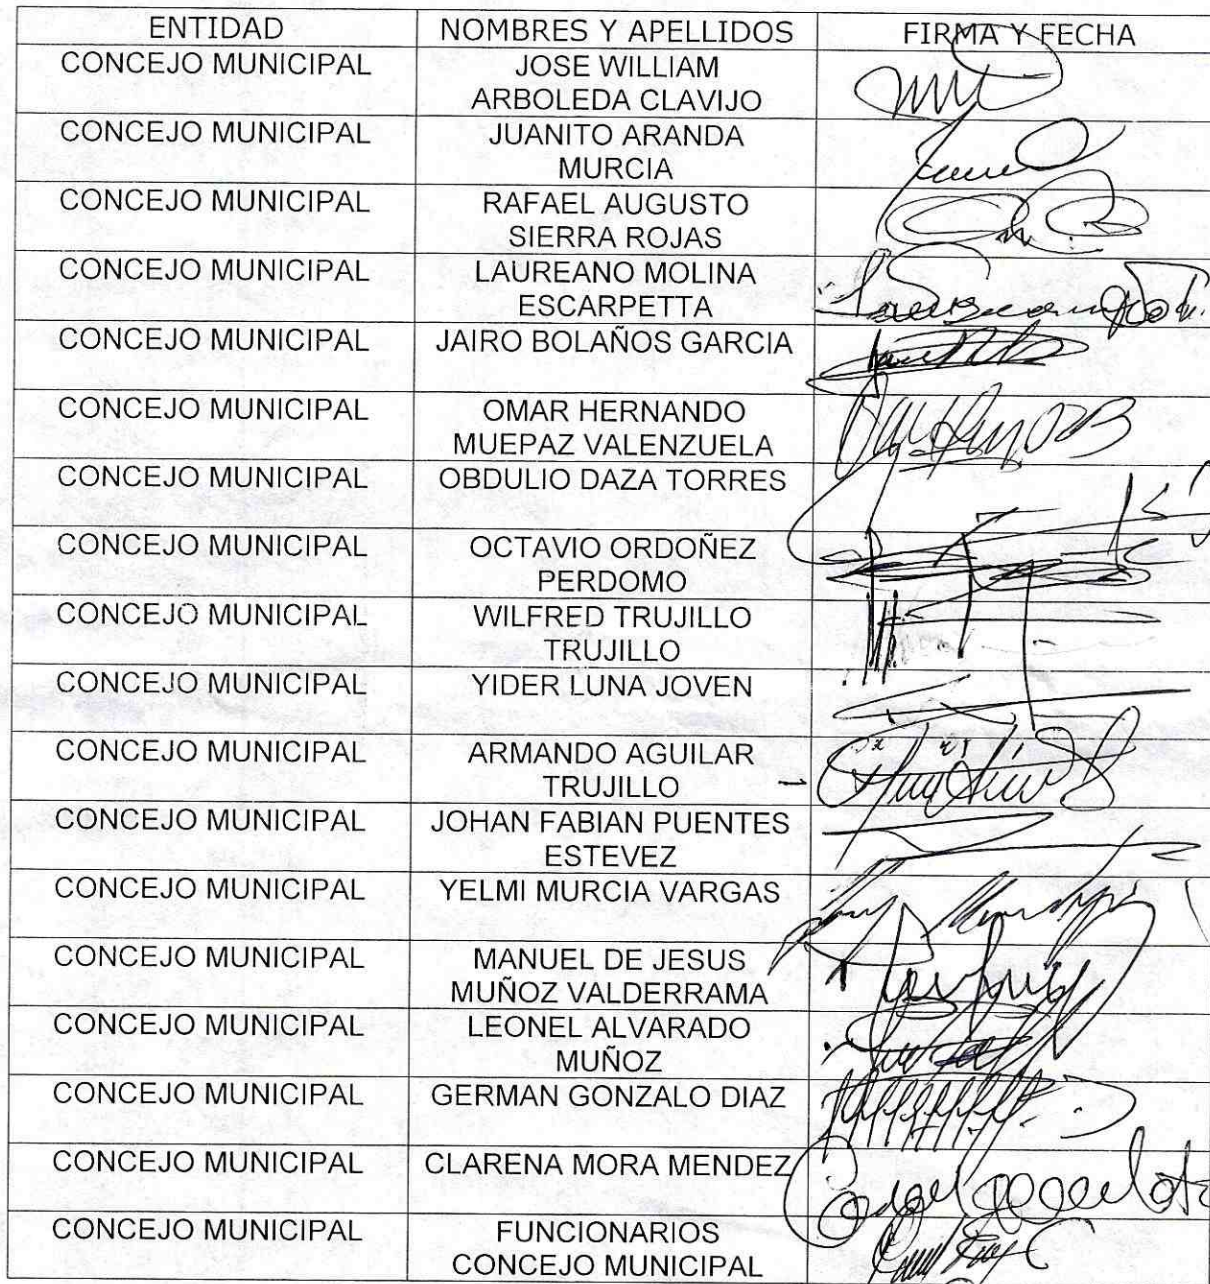 ENTIDAD NOMBRES Y APELLIDOS FIRMA Y FECHA
CONCEJO MUNICIPAL JOSE WILLIAM
ARBOLEDA CLAVIJO
CONCEJO MUNICIPAL JUANITO ARANDA
MURCIA
CONCEJO MUNICIPAL RAFAEL AUGUSTO
SIERRA ROJAS
CONCEJO MUNICIPAL LAUREANO MOLINA
ESCARPETTA
CONCEJO MUNICIPAL JAIRO BOLAÑOS GARCIA
CONCEJO MUNICIPAL OMAR HERNANDO
MUEPAZ VALENZUELA
CONCEJO MUNICIPAL OBDULIO DAZA TORRES
CONCEJO MUNICIPAL OCTAVIO ORDOÑEZ
PERDOMO
CONCEJO MUNICIPAL WILFRED TRUJILLO
TRUJILLO
CONCEJO MUNICIPAL YIDER LUNA JOVEN
CONCEJO MUNICIPAL ARMANDO AGUILAR
TRUJILLO
CONCEJO MUNICIPAL JOHAN FABIAN PUENTES
ESTEVEZ
CONCEJO MUNICIPAL YELMI MURCIA VARGAS
CONCEJO MUNICIPAL MANUEL DE JESUS
MUÑOZ VALDERRAMA
CONCEJO MUNICIPAL LEONEL ALVARADO
MUÑOZ
CONCEJO MUNICIPAL GERMAN GONZALO DIAZ
CONCEJO MUNICIPAL CLARENA MORA MENDEZ
CONCEJO MUNICIPAL FUNCIONARIOS
CONCEJO MUNICIPAL